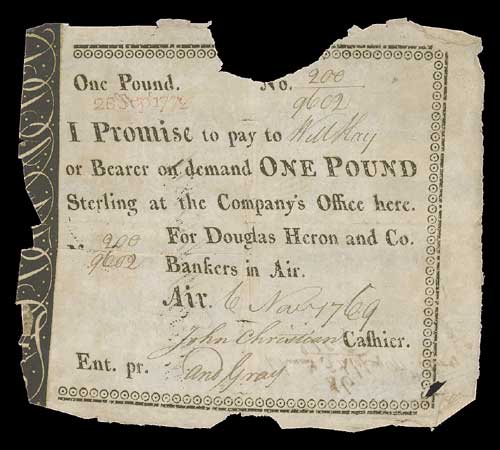 One Pound. No. 200
28 Sep 1772 9602
I Promise to pay to Will Hay
or Bearer on demand ONE POUND
Sterling at the Company's Office here.
200 For Douglas Heron and Co.
9602 Bankers in Air.
Air. 6 Novr 1769
John Christian Cashier.
Ent. pr. And Gray